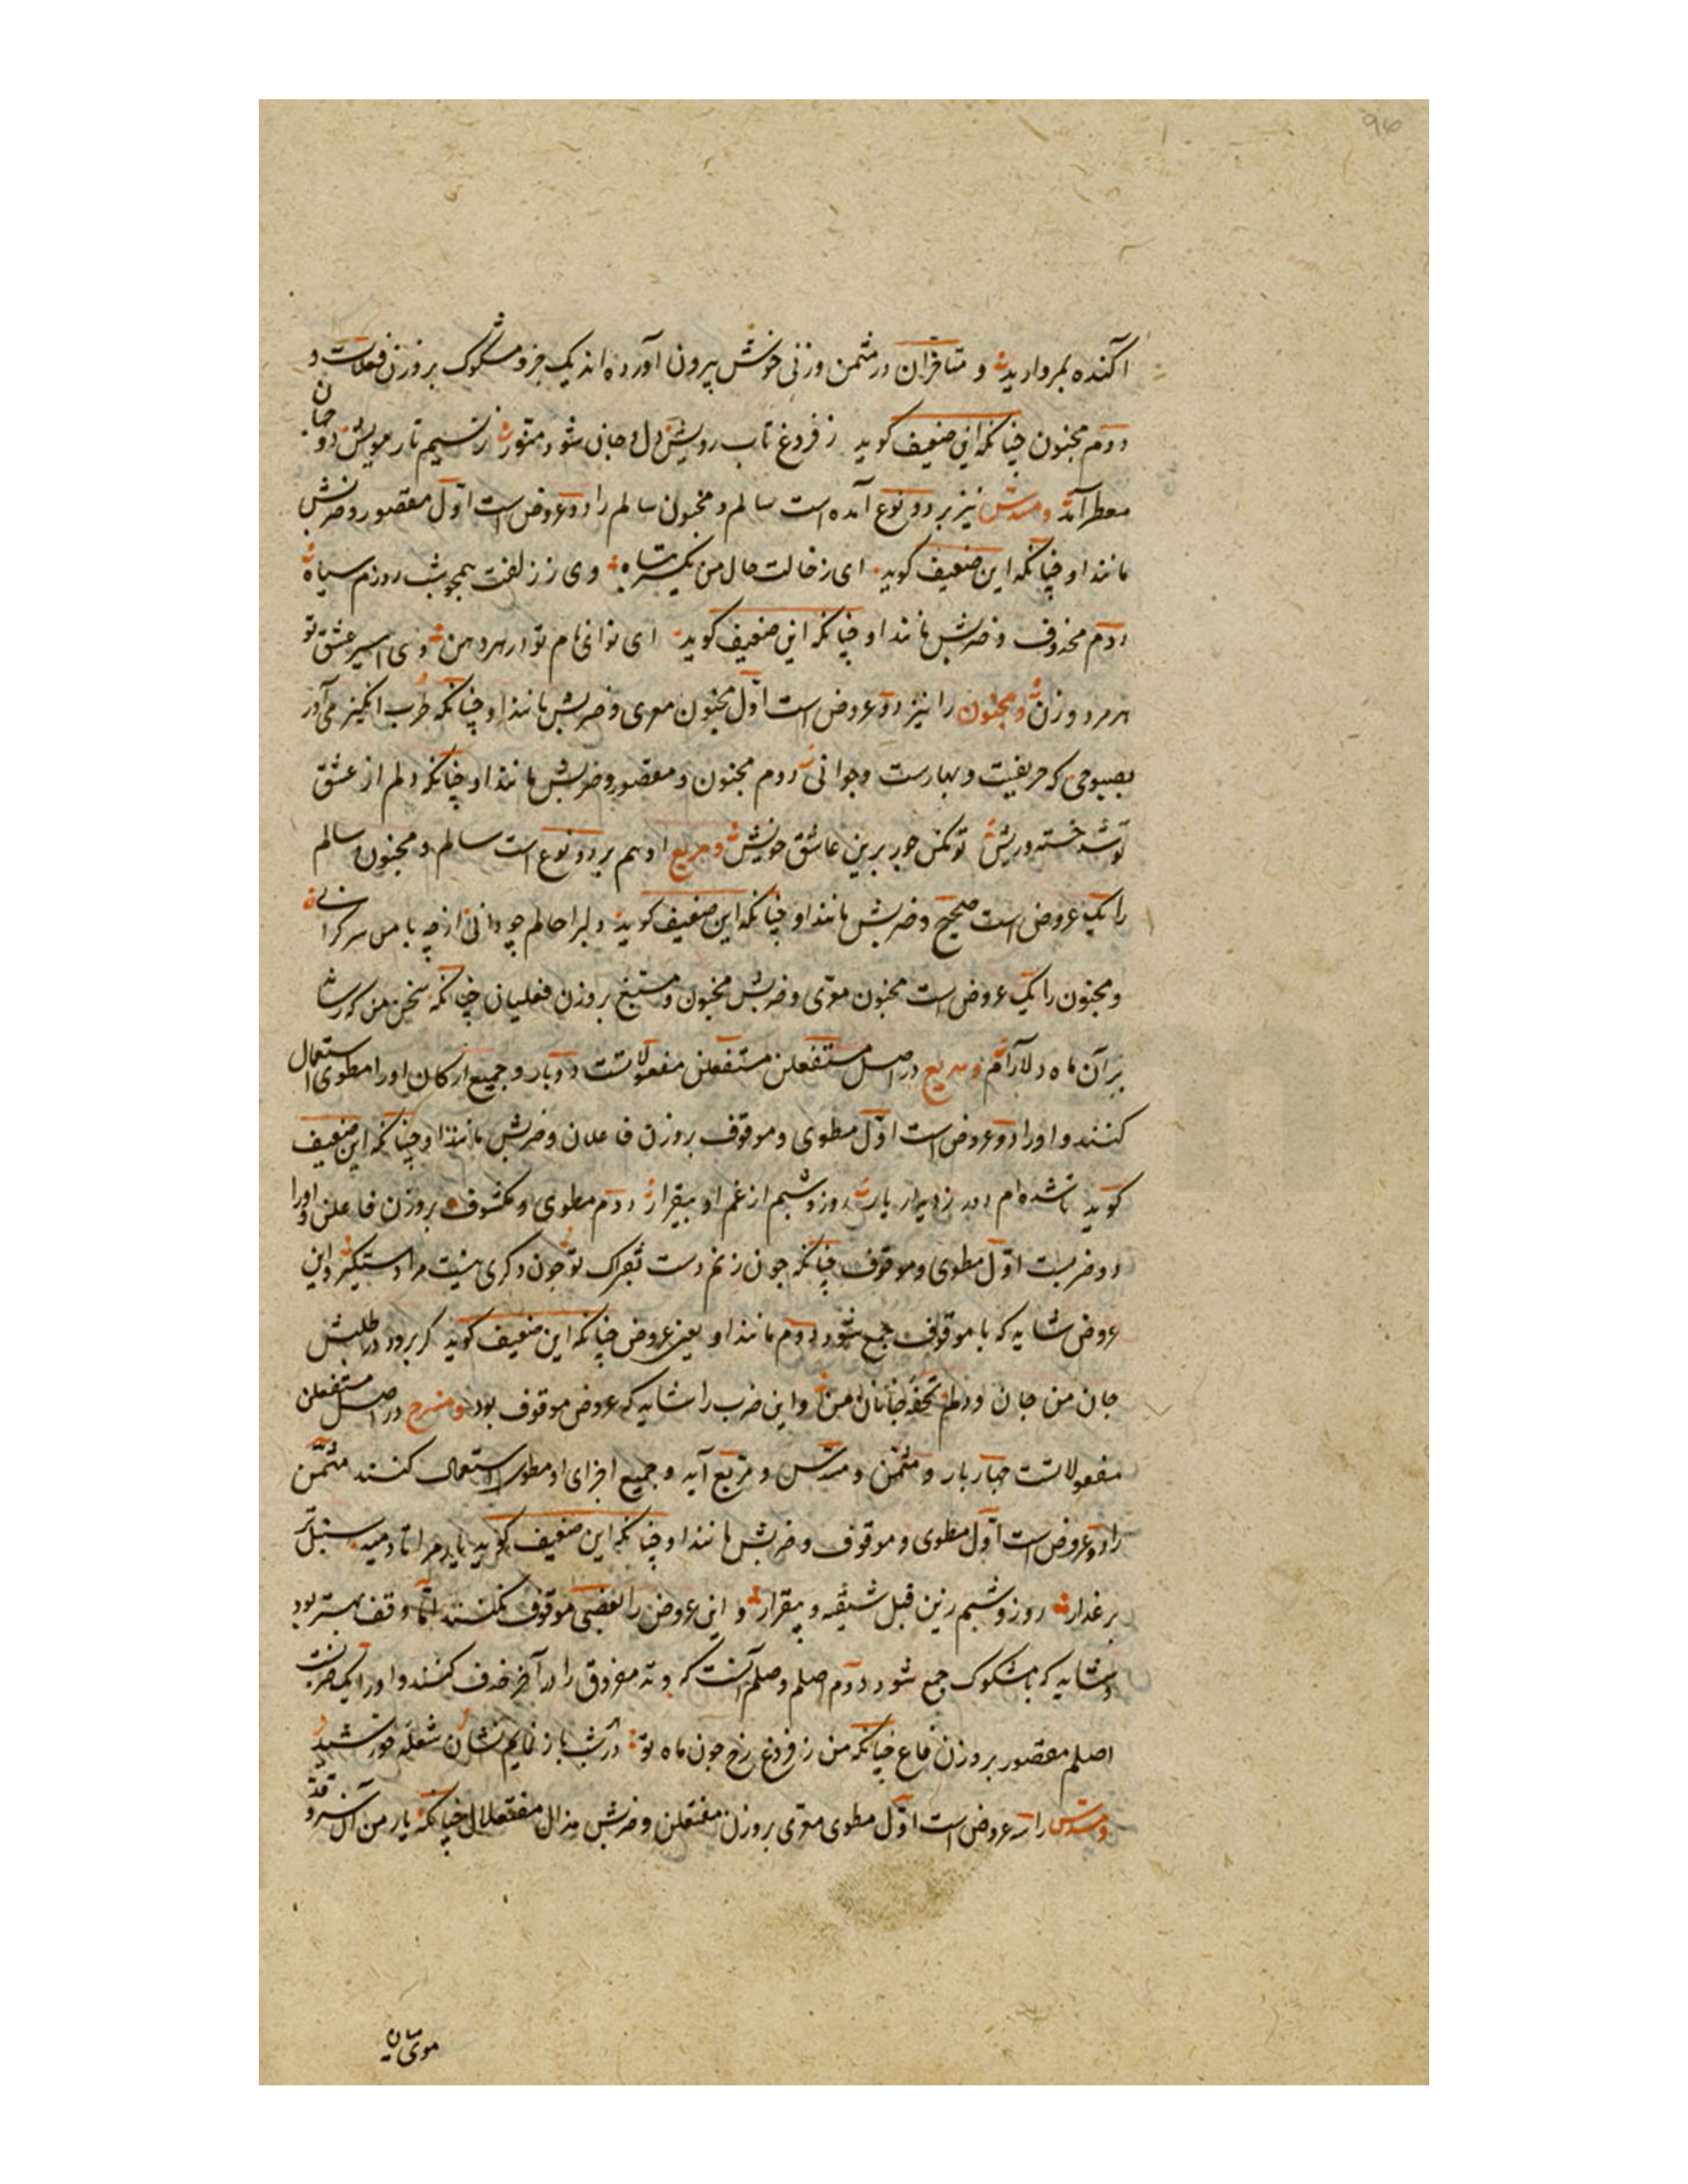 ۹۶
آکنده بمروارید و متأخران در مثمن وزنی خوش بیرون آورده اند یک جزو مشکوک بروزن فعلات و
دوم مخبون چنانکه این ضعیف کوید ز فروغ تاب رویش دل و جان شود منور ز نسیم تار مویش دو جهان
معطر آید و مسدس نیز بر دو نوع آمده است سالم و مخبون سالم را دو عروض است اول مقصور و ضربش
مانند او چنانکه این ضعیف کوید ای ز خالت حال من یکسر تباه وی ز زلفت همچو شب روزم سیاه
دوم محذوف و ضربش مانند او چنانکه این ضعیف کوید ای نوای نام تو در هر دهن وی اسیر عشق تو
هر مرد و زن و مخبون را نیز دو عروض است اول مخبون معری و ضربش مانند او چنانکه طرب انکیز می آور
بصبوحی که حریفیت و بهارست و جوانی دوم مخبون و مقصور و ضربش مانند او چنانکه دلم از عشق
تو شد خسته و ریش تو مکن جور برین عاشق خویش و مربع او هم بر دو نوع است سالم و مخبون سالم
را یک عروض است صحیح و ضربش مانند او چنانکه این ضعیف کوید دلبرا حالم چو دانی از چه با من سر کرانی
و مخبون را یک عروض است مخبون معری و ضربش مخبون و مسبغ بروزن فعلیان چنانکه سخن من که رساند
بر آن ماه دلارام و سریع در اصل مستفعلن مستفعلن مفعولات دو بار و جمیع ارکان او را مطوی استعمال
کنند و او را دو عروض است اول مطوی و موقوف بروزن فاعلان و ضربش مانند او چنانکه این ضعیف
کوید تا شده ام دور ز دیدار یار روز و شبم از غم او بیقرار دوم مطوی و مکشوف بروزن فاعلن و او را
دو ضربست اول مطوی و موقوف چنانکه چون نزنم دست بفتراک تو چون دکری نیست مرا دستکیر و این
عروض شاید که با موقوف جمع شود دوم مانند او یعنی عروض چنانکه این ضعیف کوید کر برود در طلبش
جان من جان و دلم تحفه جانان من و این ضرب را شاید که عروض موقوف بود و منسرح در اصل مستفعلن
مفعولاتست چهار بار و مثمن و مسدس و مربع آید و جمیع اجزای او مطوی استعمال کنند مثمن
را دو عروض است اول مطوی و موقوف و ضربش مانند او چنانکه این ضعیف کوید یار مرا تا دمید سنبل تر
بر عذار روز و شبم زین قبل شیفته و بیقرار و این عروض را بعضی موقوف نکنند اما وقف بهتر بود
و شاید که با مشکوک جمع شود دوم اصلم و صلم آنست که وتد مفروق را از آخر حذف کنند و او را یک ضربست
اصلم مقصور بروزن فاع چنانکه من ز فروغ رخ چون ماه تو در شب باز نمایم نشان شعله خورشید
و مسدس را سه عروض است اول مطوی معری بروزن مفتعلن و ضربش مذال مفتعلان چنانکه یار من آن سرو قد
موی میان